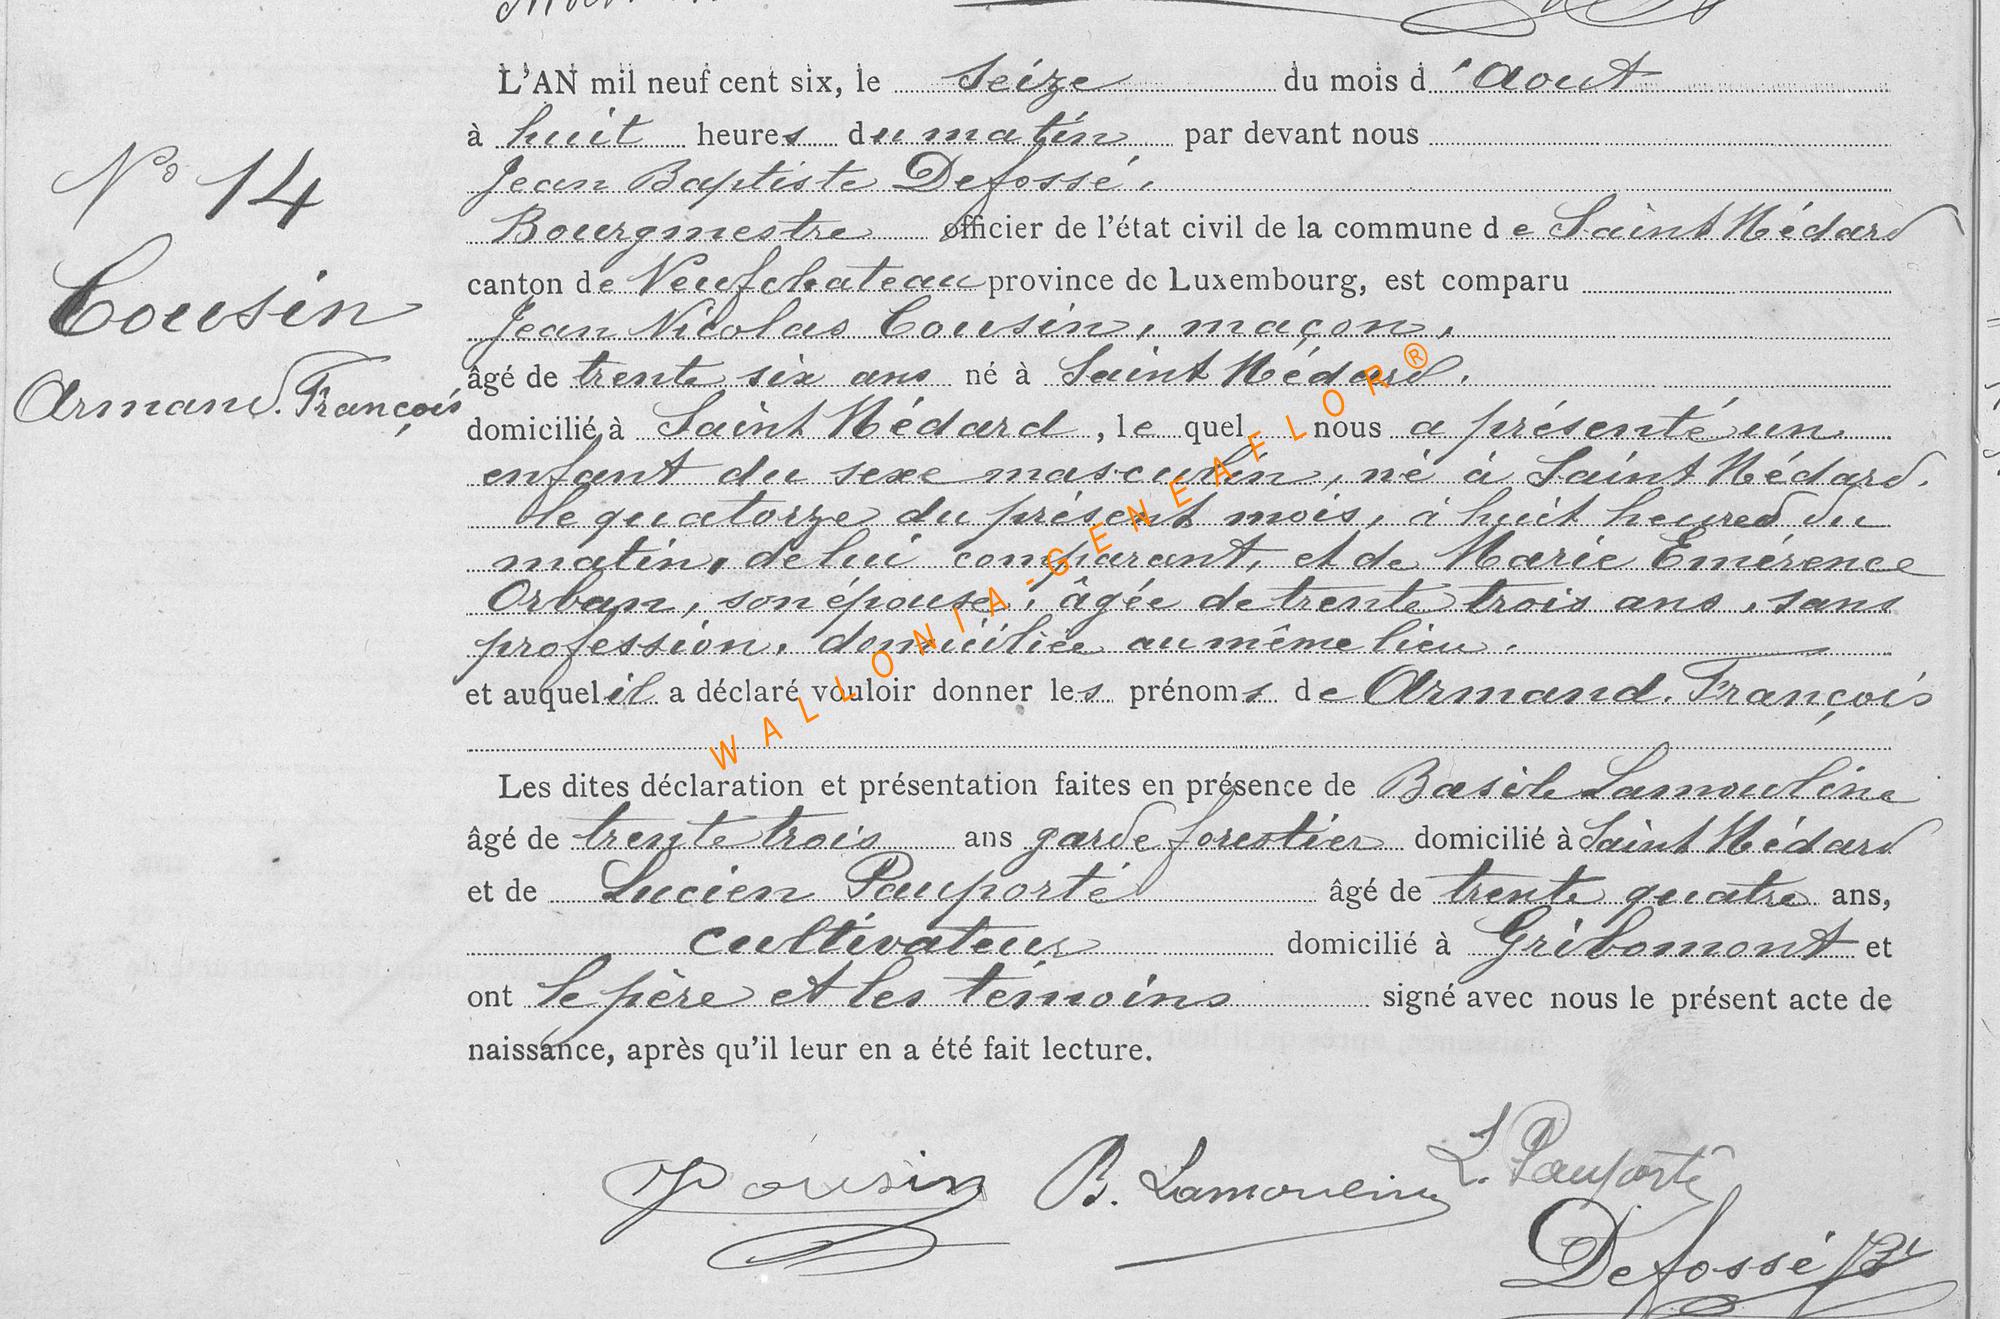 N° 14
Cousin
Armand. François
L'AN mil neuf cent six, le seize du mois d'Aout
à huit heures du matin par devant nous
Jean Baptiste Defossé,
Bourgmestre officier de l'état civil de la commune de Saint Médard
canton de Neufchateau province de Luxembourg, est comparu
Jean Nicolas Cousin, maçon,
âgé de trente six ans né à Saint Médard,
domicilié à Saint Médard, le quel nous a présenté un
enfant du sexe masculin, né à Saint Médard,
le quatorze du présent mois, à huit heures du
matin, de lui comparant, et de Marie Emérence
Orban, son épouse, âgée de trente trois ans, sans
profession, domiciliée au même lieu.
et auquel il a déclaré vouloir donner les prénoms de Armand. François
Les dites déclaration et présentation faites en présence de Basile Lamouline
âgé de trente trois ans garde forestier domicilié à Saint Médard
et de Lucien Pauporté âgé de trente quatre ans,
cultivateur domicilié à Gribomont et
ont le père et les témoins signé avec nous le présent acte de
naissance, après qu'il leur en a été fait lecture.
Cousin B. Lamouline L. Pauporté
Defossé
WALLONIA-GENEAFLOR®